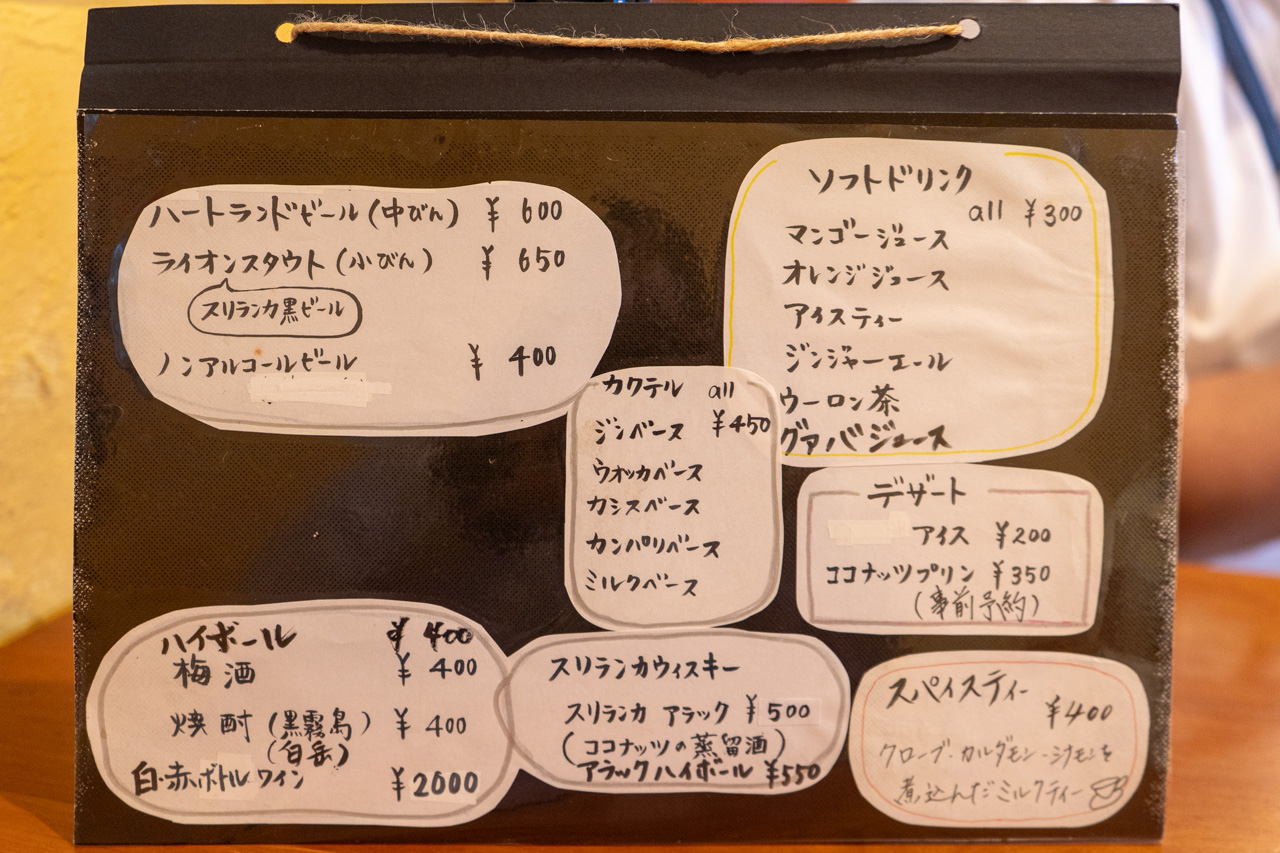 ハートランドビール(中びん) ¥ 600
ライオンスタウト(小びん) ¥ 650
スリランカ黒ビール
ノンアルコールビール ¥ 400
ソフトドリンク
all ¥300
マンゴージュース
オレンジジュース
アイスティー
ジンジャーエール
ウーロン茶
グァバジュース
カクテル all
ジンベース ¥450
ウオッカベース
カシスベース
カンパリベース
ミルクベース
デザート
アイス ¥200
ココナッツプリン ¥350
(事前予約)
ハイボール ¥ 400
梅酒 ¥ 400
焼酎(黒霧島) ¥ 400
(白岳)
白・赤ボトルワイン ¥2000
スリランカウィスキー
スリランカ アラック ¥500
(ココナッツの蒸留酒)
アラックハイボール ¥550
スパイスティー
¥400
クローブ・カルダモン・シナモンを
煮込んだミルクティー